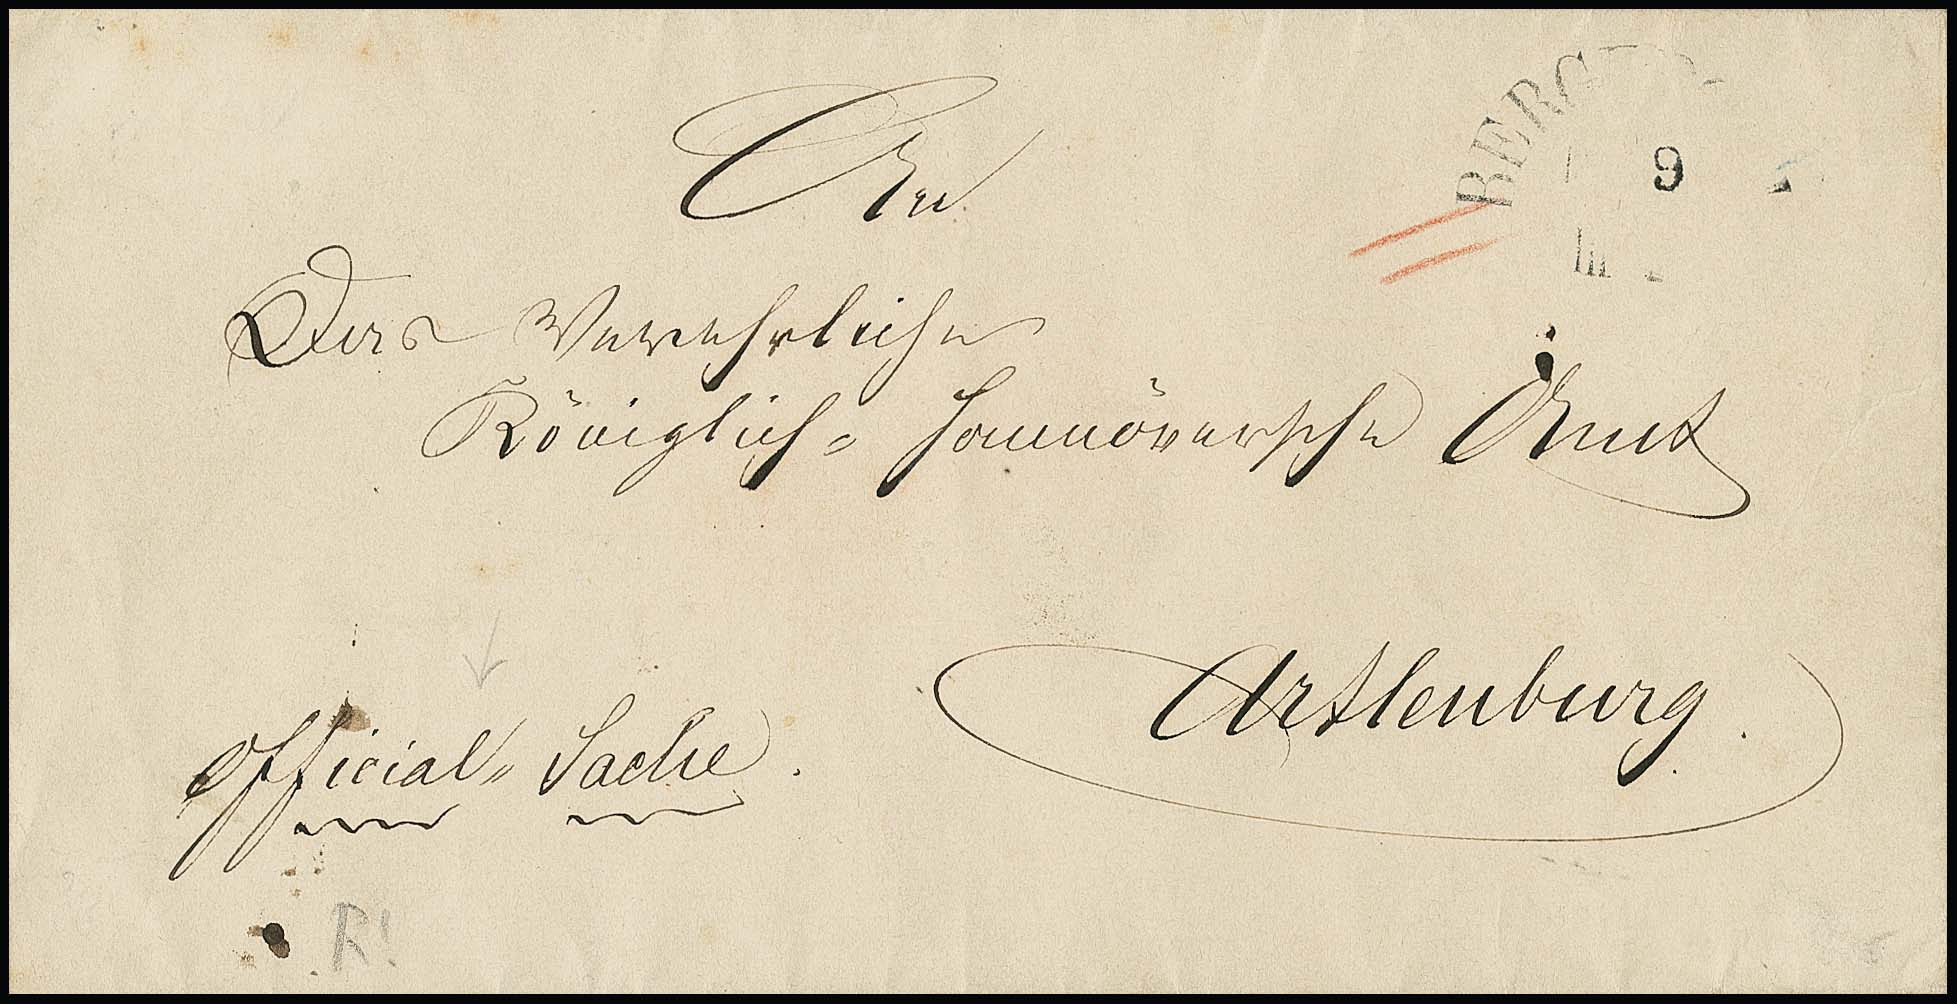 BERG
9
An
Das Verehrliche
Königlich- Hannöversche Amt
Artlenburg.
Official- Sache.
R!